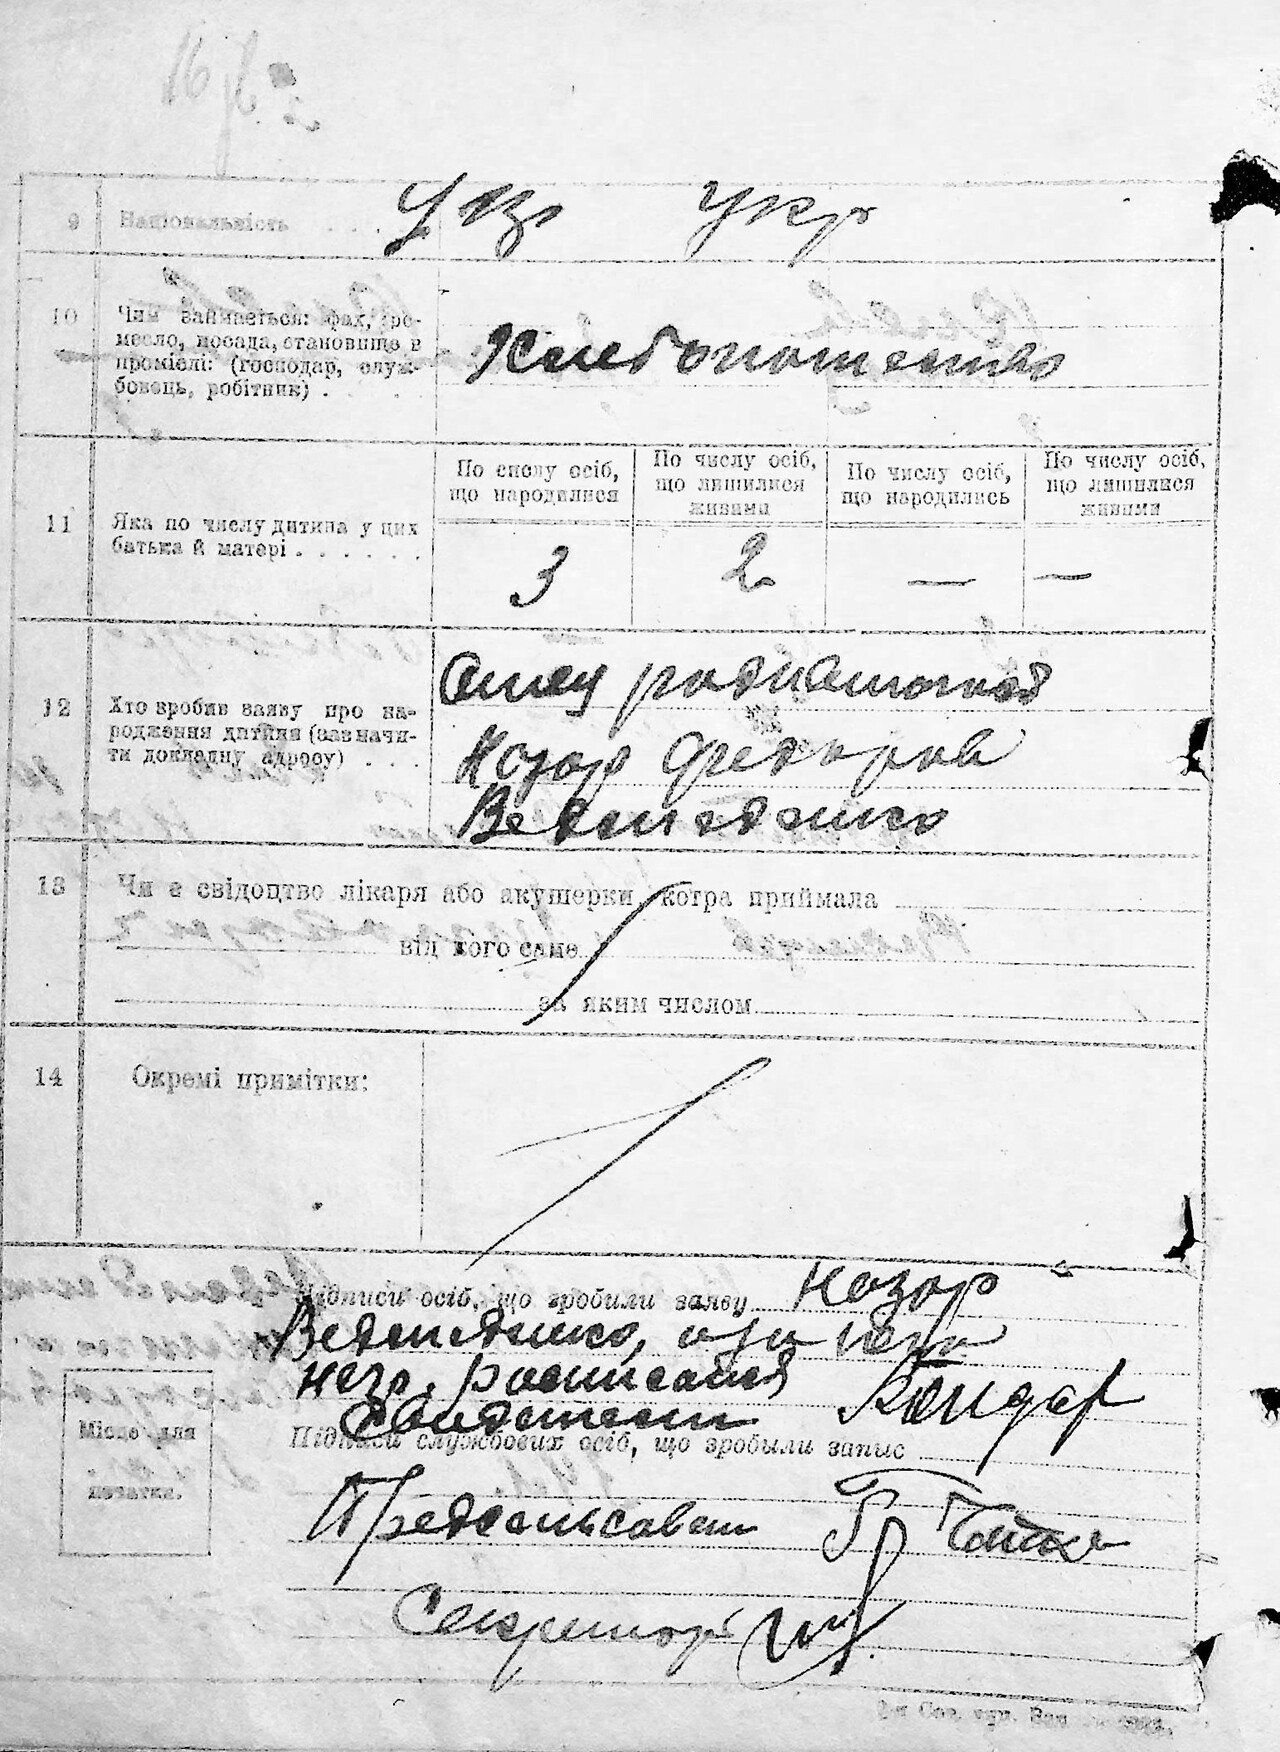 9 Національність . . . Укр Укр
10 Чим займається: фах, ре-
месло, посада, становище в
промислі: (господар, служ-
бовець, робітник) .
Хлебопашество
11 Яка по числу дитина у цих
батька й матері . . . . . .
По числу осіб,
що народилися
По числу осіб,
що лишилися
живими
По числу осіб,
що народились
По числу осіб,
що лишилися
живими
3 2 — —
12 Хто зробив заяву про на-
родження дитини (зазначи-
ти докладну адресу) . . .
Отец
Назар Федоров
13 Чи є свідоцтво лікаря або акушерки, котра приймала
від кого саме
за яким числом
14 Окремі примітки:
Підписи осіб, що зробили заяву Назар
а за него
негр. росписался Бондар
Підписи службових осіб, що зробили запис
Місце для
печатки.
Предсельсовета
Секретарь